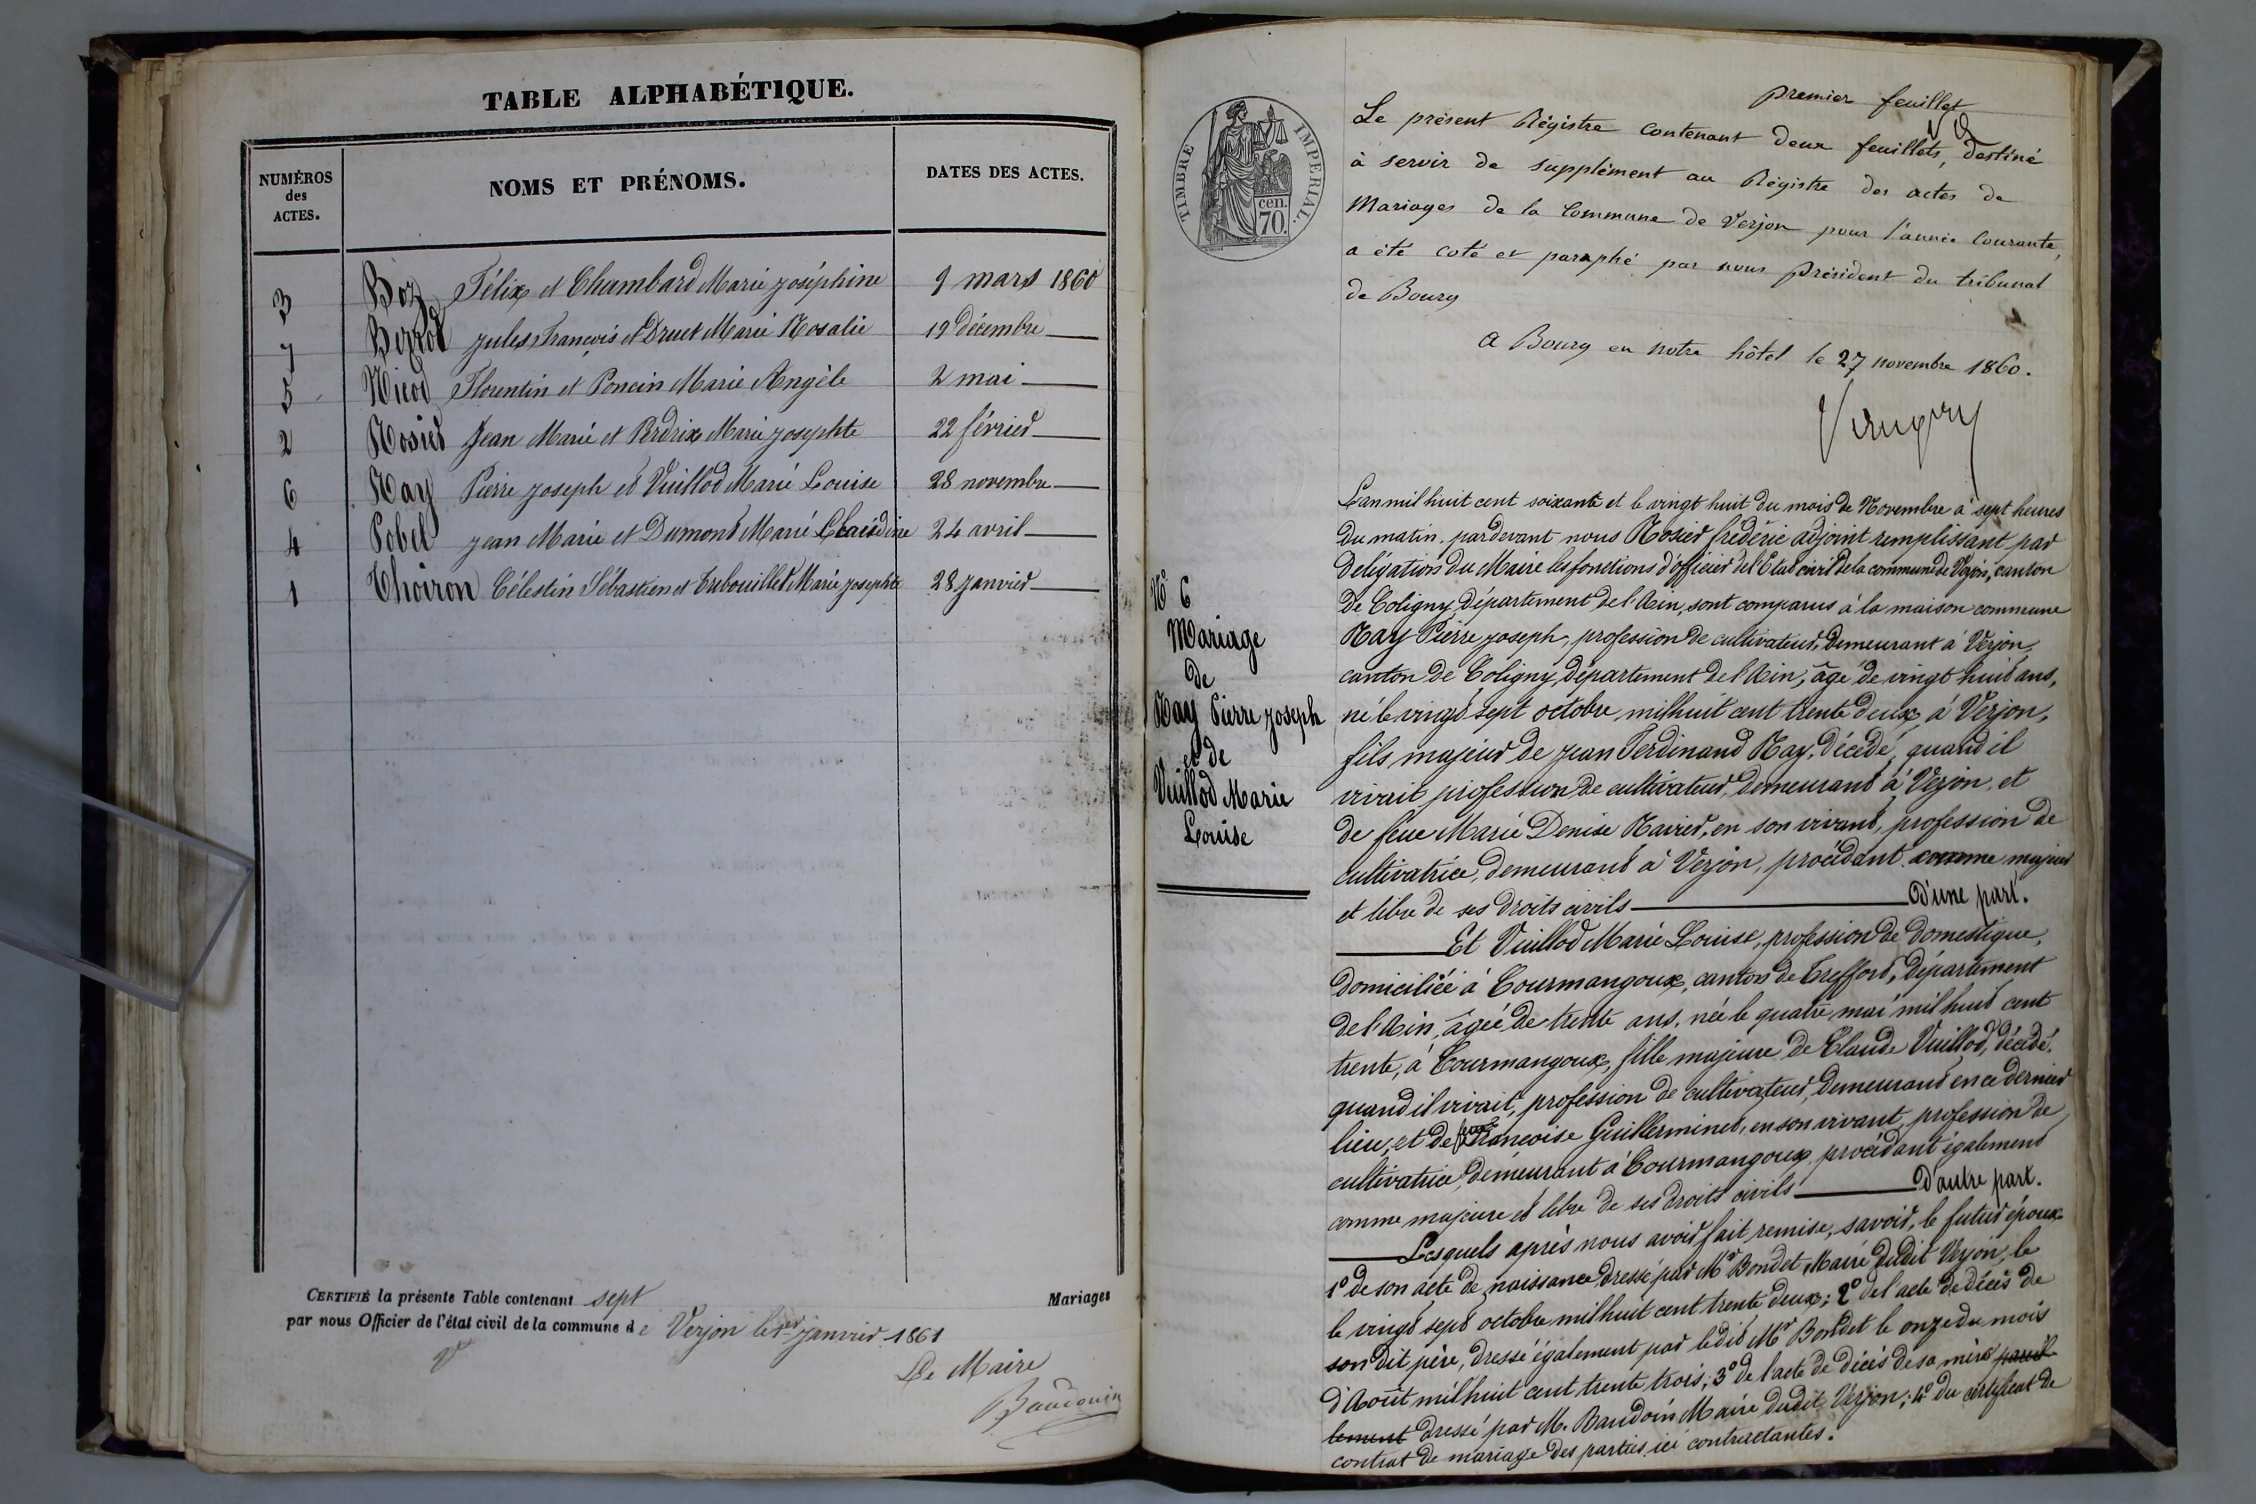 TABLE ALPHABÉTIQUE.
NUMÉROS des ACTES.
NOMS ET PRÉNOMS.
DATES DES ACTES.
3 Boz Félix et Chambard Marie joséphine 9 mars 1860
7 jules François et Druet Marie Rosalie 19 décembre
5 Nicod Florentin et Poncin Marie Angèle 2 mai
2 Rosier Jean Marie et Perdrix Marie josephte 22 février
6 Ray Pierre joseph et Vuillod Marie Louise 28 novembre
4 Pobel jean Marie et Dumont Marie Claudine 24 avril
1 Thoiron Célestin Sébastien et Marie josephte 28 janvier
CERTIFIÉ la présente Table contenant sept Mariages
par nous Officier de l'état civil de la commune de Verjon le 1er janvier 1861
Le Maire
Baudouin
TIMBRE IMPÉRIAL.
70. cen.
premier feuillet
Le présent Régistre contenant deux feuillets, destiné
à servir de supplément au Régistre des actes de
Mariages de la Commune de Verjon pour l'année Courante,
a été coté et paraphé par nous président du tribunal
de Bourg
a Bourg en notre hôtel le 27 novembre 1860.
L'an mil huit cent soixante et le vingt huit du mois de Novembre à sept heures
du matin, pardevant nous Rosier frédéric adjoint remplissant par
Délégation du Maire les fonctions d'officier de l'Etat civil de la commune de Verjon, canton
De Coligny, département de l'Ain, sont comparus à la maison commune
Ray Pierre joseph, profession de cultivateur, demeurant à Verjon,
canton de Coligny, département de l'Ain, âgé de vingt huit ans,
né le vingt sept octobre mil huit cent trente deux, à Verjon,
fils majeur de jean Ferdinand Ray, décédé, quand il
vivait profession de cultivateur, demeurant à Verjon, et
de feue Marie Denise Ravier, en son vivant, profession de
cultivatrice, demeurant à Verjon, procédant comme majeur
et libre de ses droits civils D'une part.
Et Vuillod Marie Louise, profession de domestique,
domiciliée à Courmangoux, canton de Treffort, département
de l'Ain, âgée de trente ans, née le quatre mai mil huit cent
trente, à Courmangoux, fille majeure de Claude Vuillod, décédé,
quand il vivait, profession de cultivateur, demeurant en ce dernier
lieu, et de feue Francoise Guillerminet, en son vivant, profession de
cultivatrice, demeurant à Courmangoux, procédant également
comme majeure et libre de ses droits civils D'autre part.
Lesquels après nous avoir fait remise, savoir, le futur époux
1º de son acte de naissance dressé par Mr Bondet, Maire dudit Verjon, le
le vingt sept octobre mil huit cent trente deux; 2º del'acte de décès de
son dit père, dressé également par ledit Mr Bondet le onze du mois
d'Août mil huit cent trente trois; 3º de l'acte de décès de sa mère pareil
lement dressé par M. Baudoin Maire dudit Verjon; 4º du certificat de
contrat de mariage des parties ici contractantes.
Nº 6
Mariage
de
Ray Pierre joseph
et de
Vuillod Marie
Louise